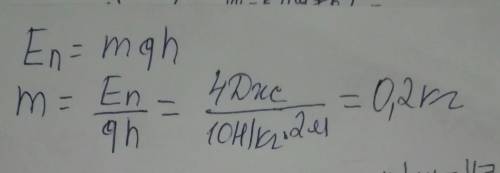 Eп = mgh
m = Eп/gh = 4Дж/10Н/кг·2м = 0,2кг